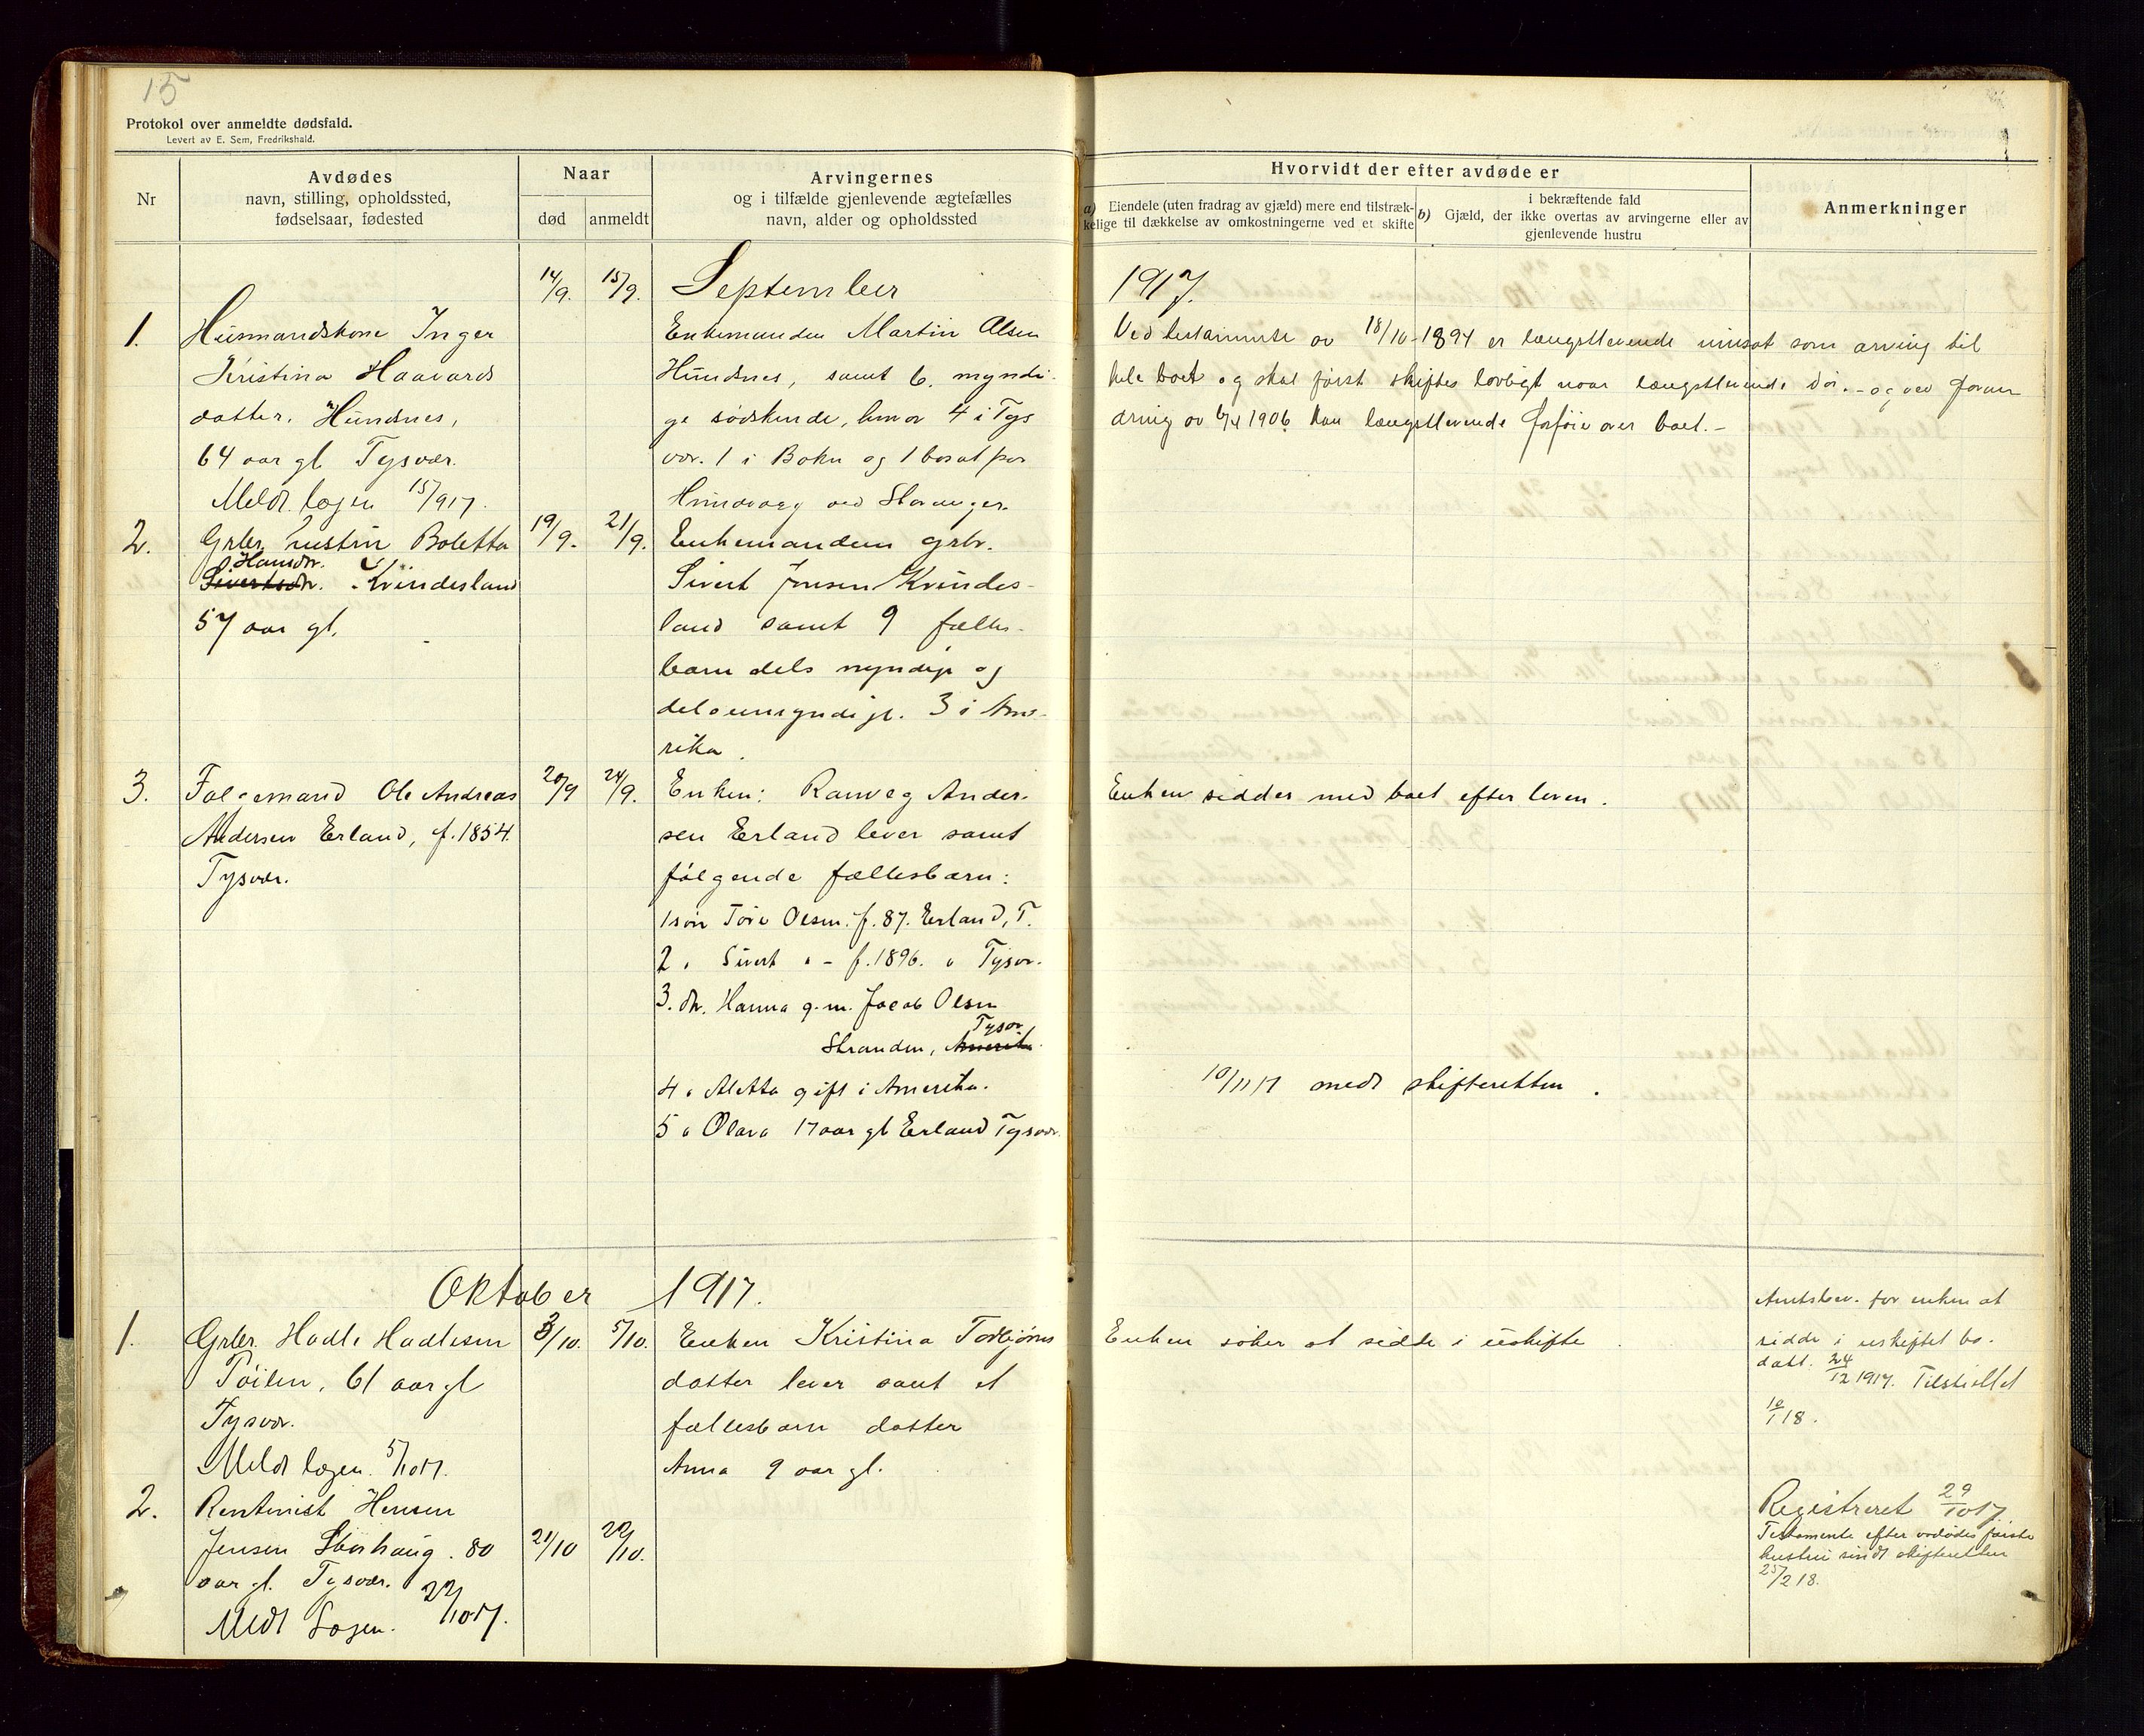 15
Protokol over anmeldte dødsfald.
Levert av E. Sem, Fredrikshald.
Nr
Avdødes
navn, stilling, opholdssted,
fødselsaar, fødested
Naar
død
anmeldt
Arvingernes
og i tilfælde gjenlevende ægtefælles
navn, alder og opholdssted
Hvorvidt der efter avdøde er
a) Eiendele (uten fradrag av gjæld) mere end tilstræk-
kelige til dækkelse av omkostningerne ved et skifte
i bekræftende fald
b) Gjæld, der ikke overtas av arvingerne eller av
gjenlevende hustru
Anmerkninger
September 1917.
1.
Husmandskone Inger
Kristina Haavards
datter. Hundsnes,
64 aar gl. Tysvær.
Meldt lægen 15/9 17.
14/9.
15/9.
Enkemanden Martin Olsen
Hundsnes, samt 6. myndi-
ge sødskende, hvor 4 i Tys
vær. 1 i Bokn og 1 bosat paa
Hundvaag ved Stavanger.
Ved testamente av 18/10-1894 er længstlevende innsat som arving til
hele boet og skal først skiftes lovligt naar længstlevende dør. - og ved foran
dring av 6/4 1906 kan længstlevende forføie over boet. -
2.
Grbr. hustru Boletta
Hansdr.
Sivertsdr. Kvindesland
57 aar gl.
19/9.
21/9.
Enkemanden grbr.
Sivert Jensen Kvindes-
land samt 9 fælles-
barn dels myndige og
dels umyndige. 3 i Ame-
rika.
3.
Følgemand Ole Andreas
Andersen Erland, f. 1854.
Tysvær.
20/9
24/9.
Enken: Ranveg Ander-
sen Erland lever samt
følgende fællesbarn:
1 søn Tore Olsen. f. 87. Erland, T.
2 " Sivert " - f. 1896. " Tysv.
3. dtr. Hanna g. m. Jacob Olsen
Tysv.
Stranden, Amerika.
4 " Aletta gift i Amerika.
5 " Olava 17 aar gl Erland Tysvær
Enken sidder med boet efter loven.
10/11 17 medt skifteretten.
Oktober 1917.
1.
Grbr. Hadle Hadlesen
Pøilen, 61 aar gl
Tysvær.
Meldt lægen. 5/10 17.
3/10.
5/10.
Enken Kristina Torbjørns
datter lever samt et
fællesbarn datter
Anna 9 aar gl.
Enken søker at sidde i uskifte.
Amtsbev. for enken at
sidde i uskiftet bo.
datt. 24/12 1917. Tilstillet
10/1 18.
2.
Rentenist Hensen
Jensen Storhaug. 80
aar gl. Tysvær.
Meldt Lægen. 22/10 17.
21/10
22/10.
Registreret 29/10 17
Testamente efter avdødes første
hustru sendt skifteretten
25/2 18.